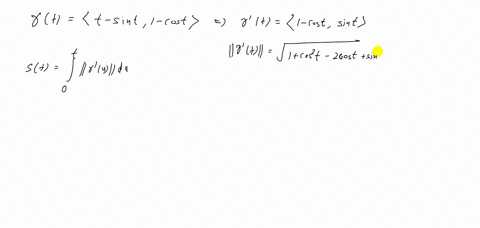 γ(t) = ⟨t-sint, 1-cost⟩ ⇒ γ'(t) = ⟨1-cost, sint⟩
||γ'(t)|| = √1+cos²t - 2cost + sin
S(t) = ∫₀ᵗ ||γ'(u)|| du